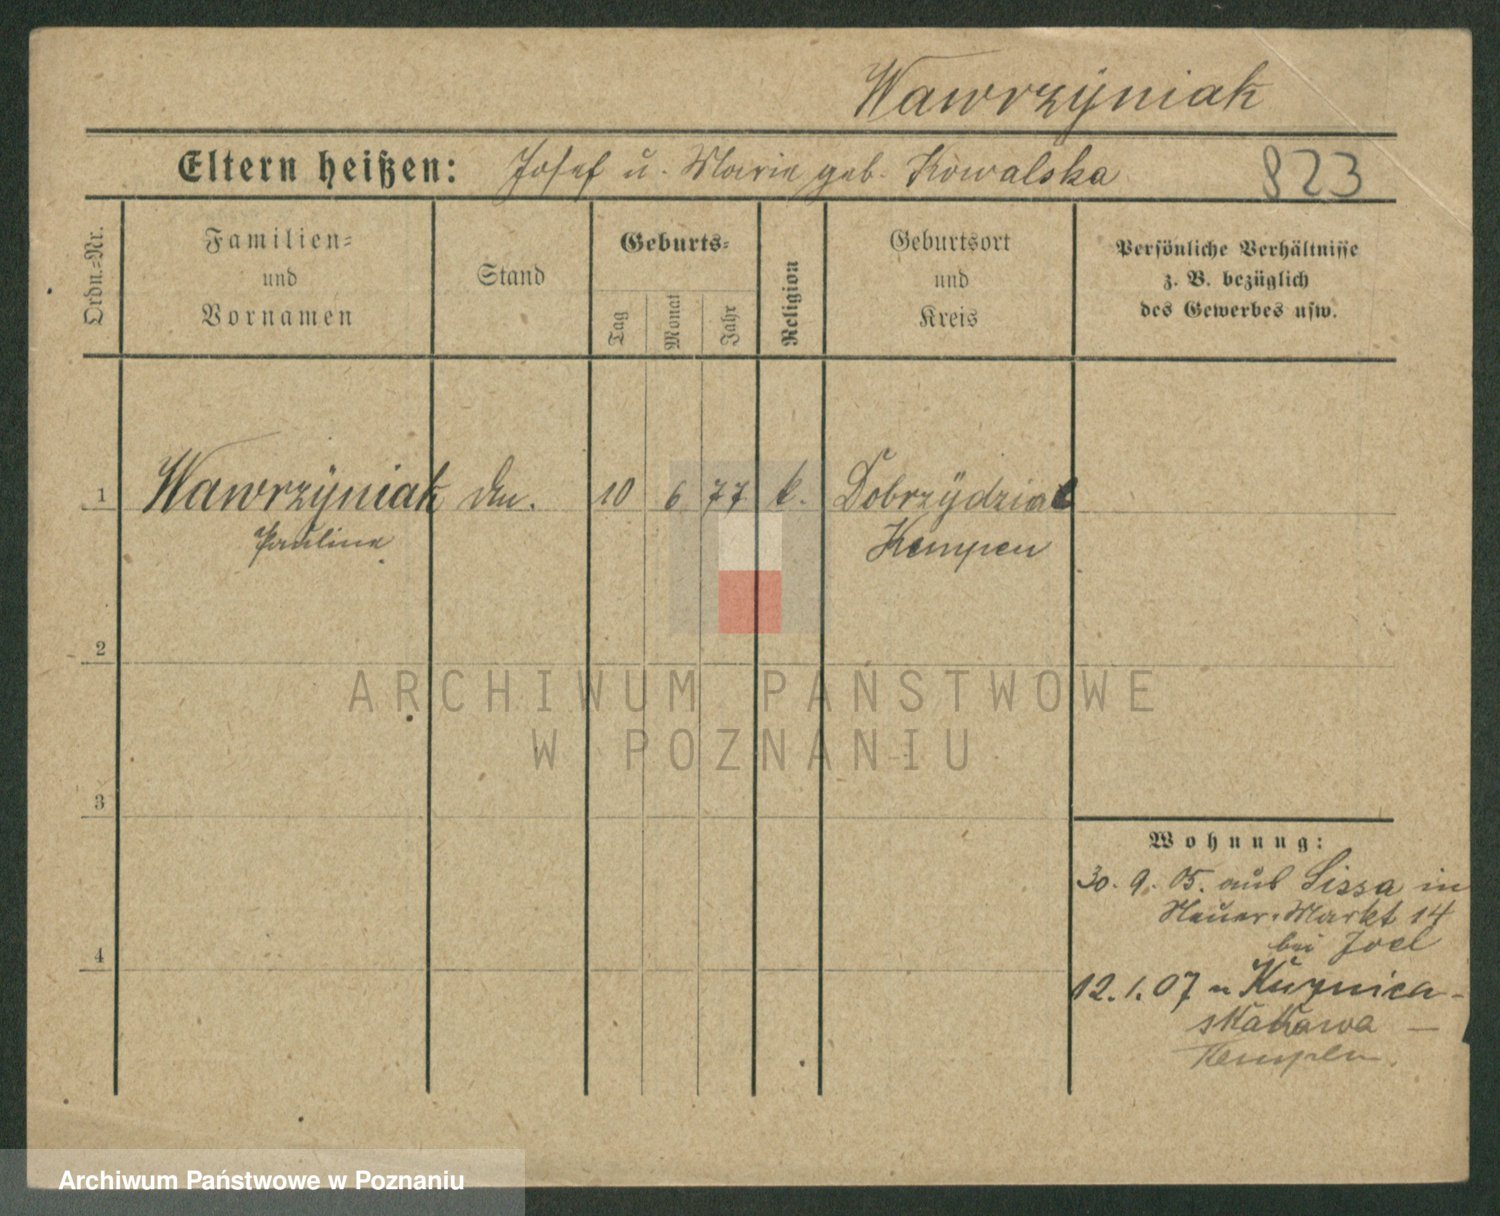 Wawrzÿniak
Eltern heißen: Josef u. Marie geb. Kowalska 823
Ordn.=Nr.
Familien=
und
Vornamen
Stand
Geburts=
Tag
Monat
Jahr
Religion
Geburtsort
und
Kreis
Persönliche Verhältnisse
z. B. bezüglich
des Gewerbes usw.
1 Wawrzÿniak 10 6 77 k. Dobrzÿdzial
Pauline Kempen
2
ARCHIWUM PAŃSTWOWE
W POZNANIU
3
Wohnung:
30. 9. 05. aus Lissa in
Neuer-Markt 14
bei Joel
4
12.1.07 n Kuznica-
skakawa —
Kempen.
Archiwum Państwowe w Poznaniu